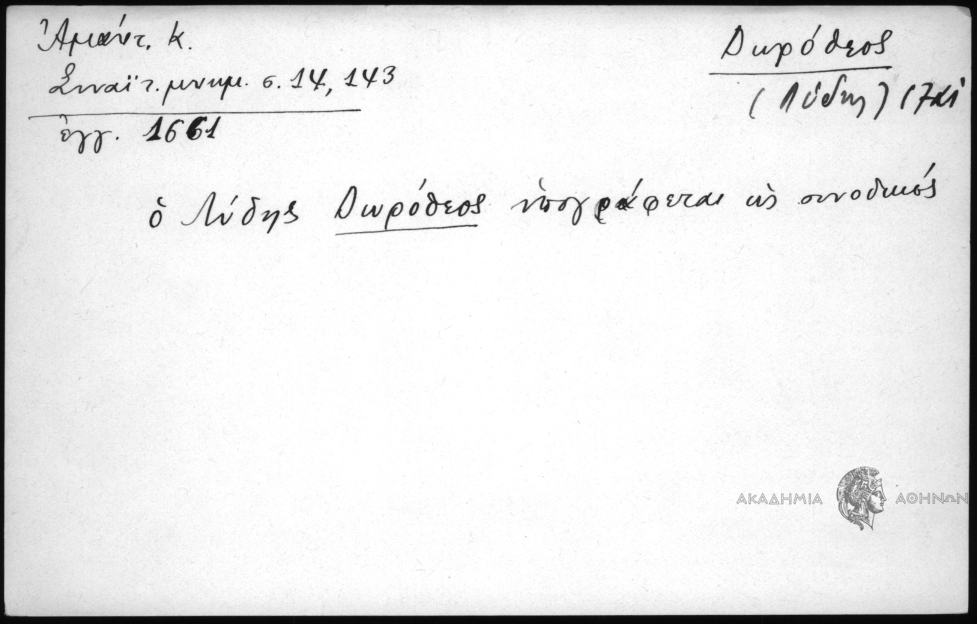 Ἀμάντ. Κ.
Σιναϊτ. μνημ. σ. 14, 143
ἐγγ. 1661
Δωρόθεος
(Λύδης) 17 αἰ
ὁ Λύδης Δωρόθεος ὑπογράφεται ὡς συνοδικός
ΑΚΑΔΗΜΙΑ ΑΘΗΝΩΝ